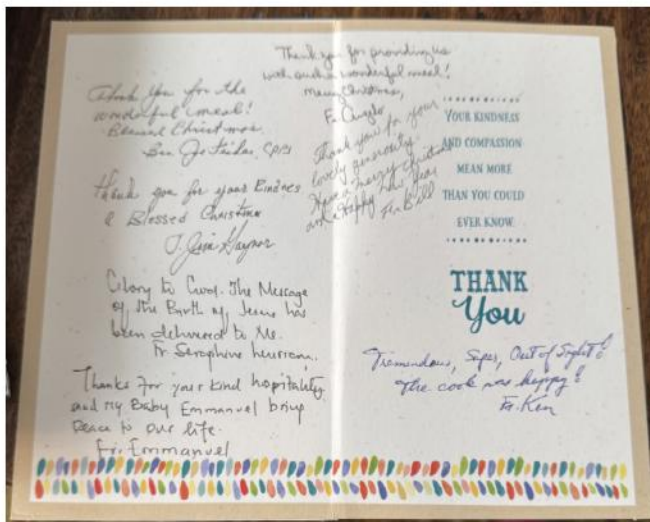 Thank you for providing us
with such a wonderful meal!
Merry Christmas,
Fr. Angelo
Thank you for the
wonderful meal!
Blessed Christmas
Bro. Jo
Thank you for your
lovely generosity
Have a merry christmas
and a Happy New Year
Fr. Bill
Thank you for your Kindnes
& Blessed Christmas
J. Jim Gaynor
Glory to God. The Message
of the Birth of Jesus has
been delivered to Me.
Fr. Seraphine
Thanks for your kind hopitality
and my Baby Emmanuel bring
peace to our life.
Fr. Emmanuel
YOUR KINDNESS
AND COMPASSION
MEAN MORE
THAN YOU COULD
EVER KNOW.
THANK
You
Tremendous, Super, Out of Sight!
The cook was happy!
Fr. Ken